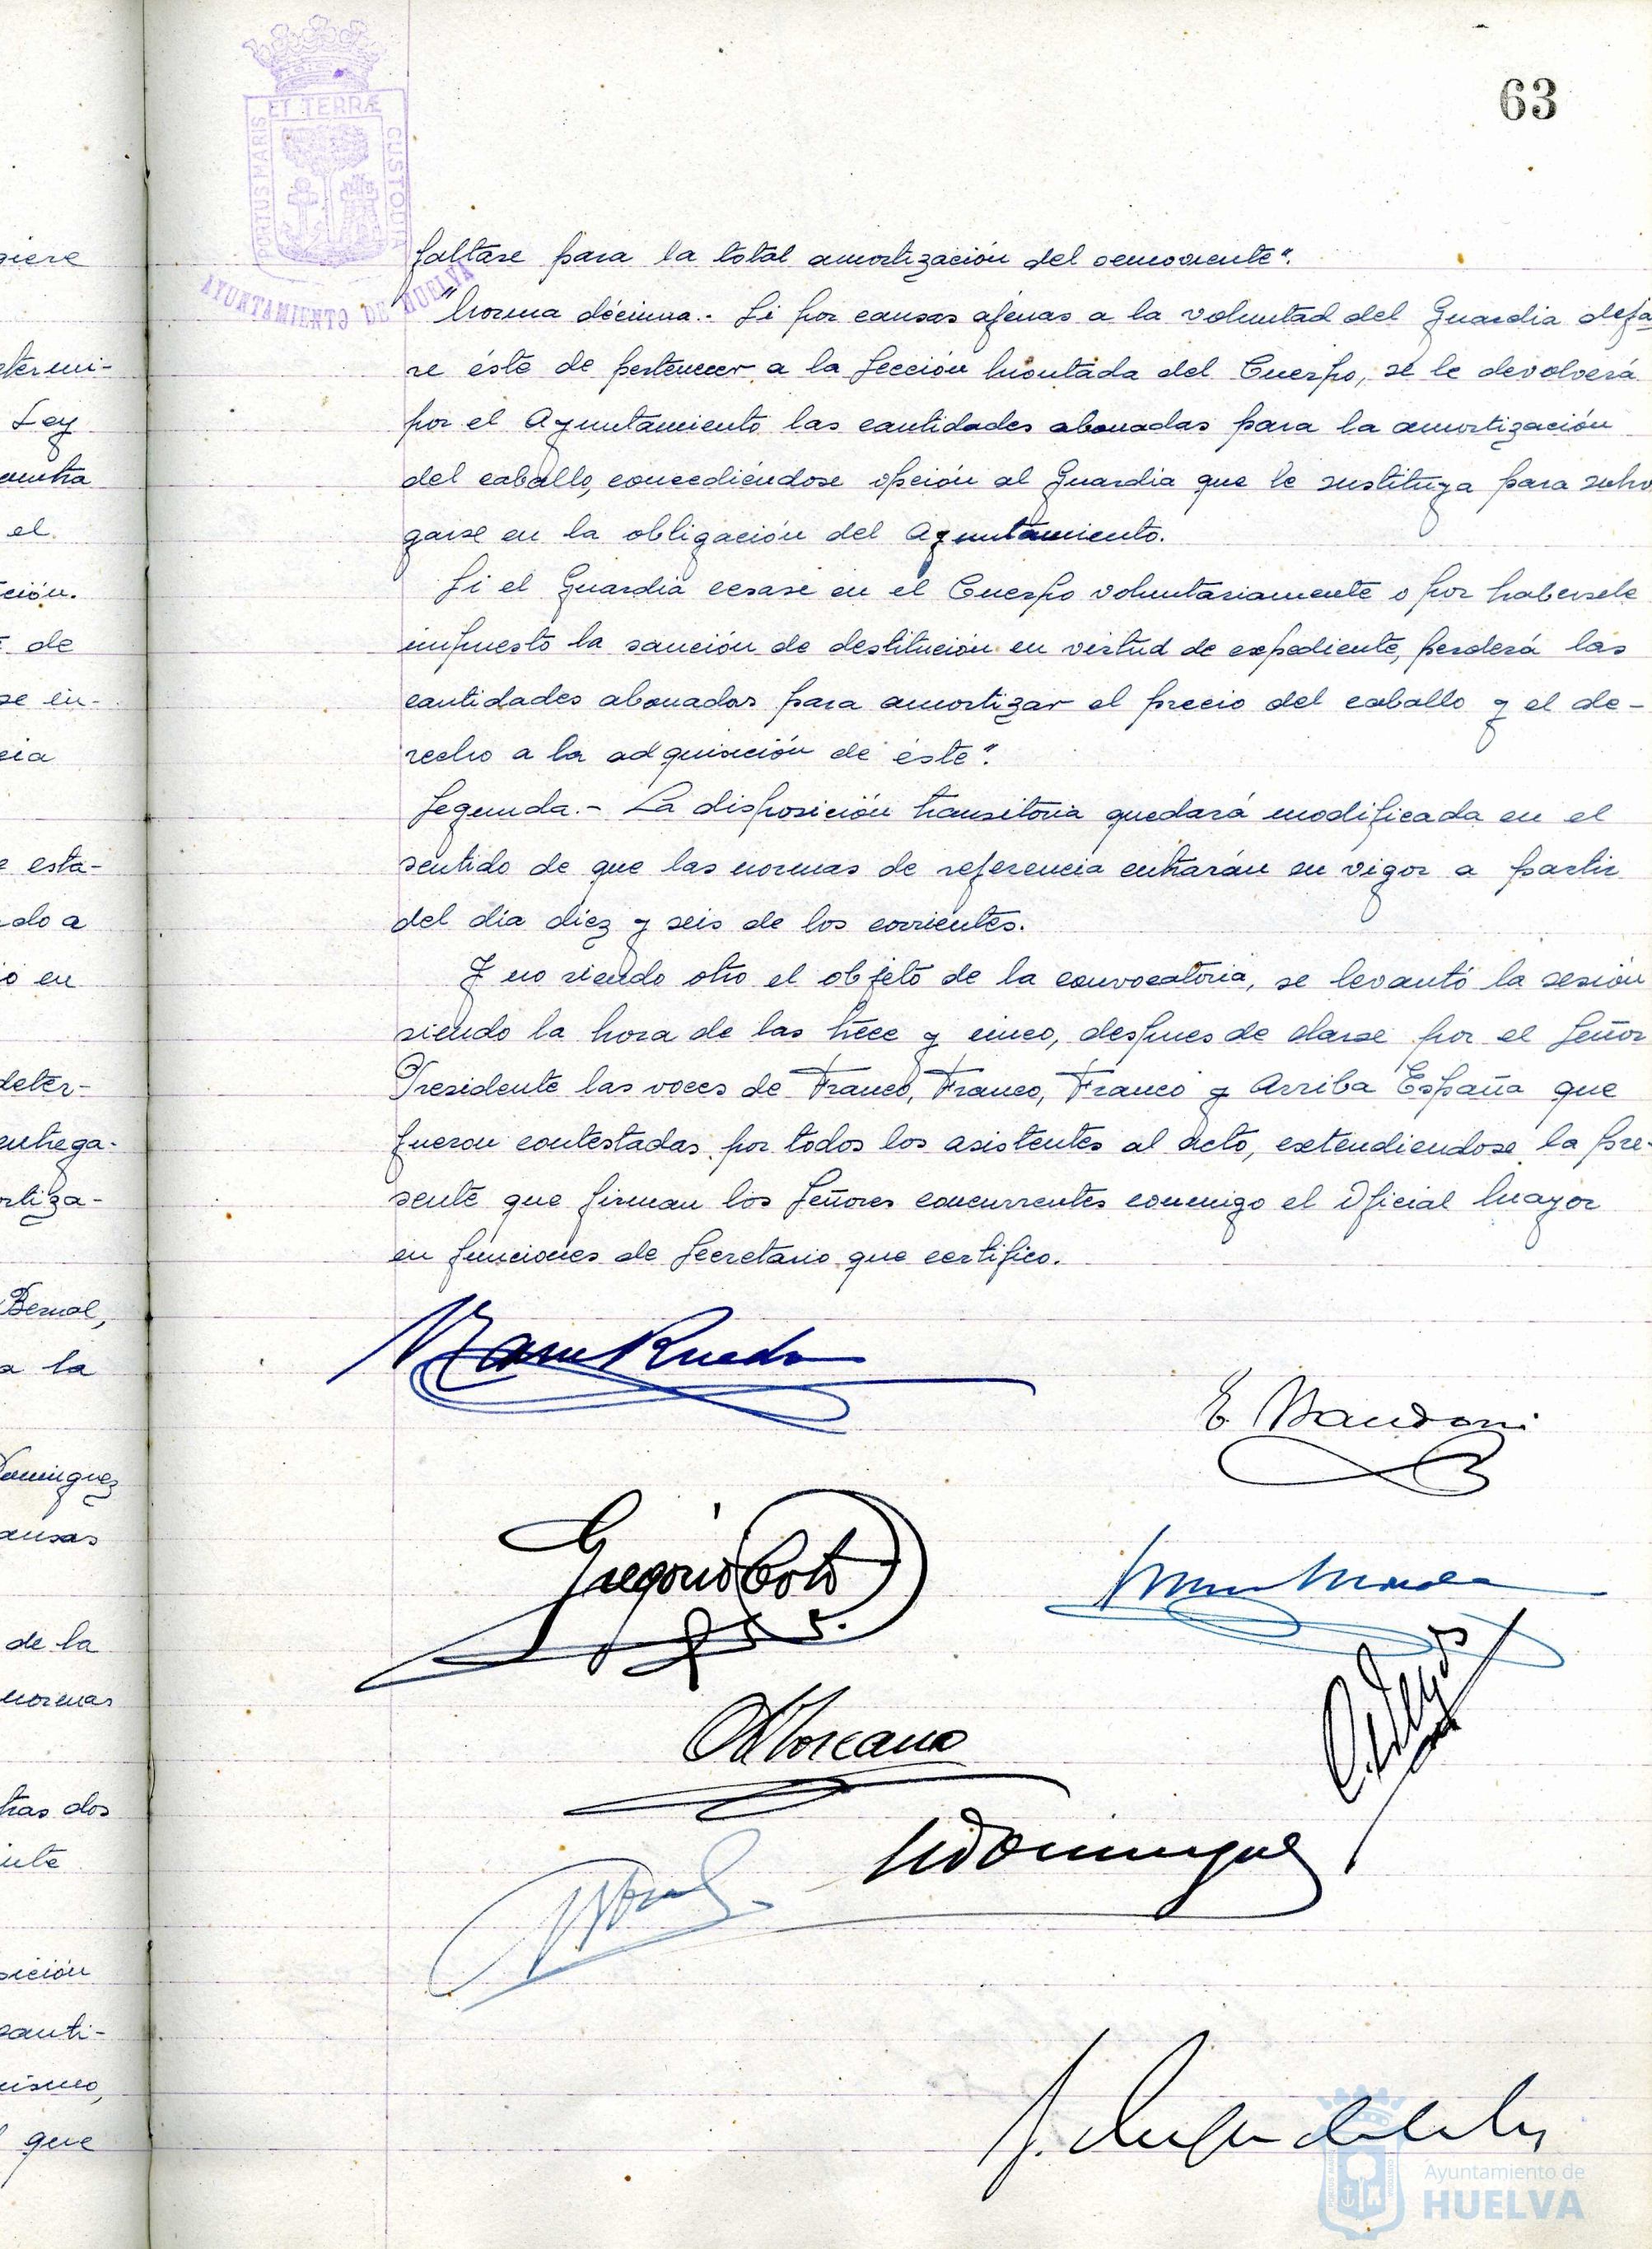 63
PORTUS MARIS ET TERRÆ CUSTODIA
AYUNTAMIENTO DE HUELVA
faltase para la total amortización del semoviente".
"Norma décima.- Si por causas ajenas a la voluntad del Guardia deja
se éste de pertenecer a la Sección Montada del Cuerpo, se le devolverá
por el Ayuntamiento las cantidades abonadas para la amortización
del caballo, concediéndose opción al Guardia que le sustituya para subro
garse en la obligación del Ayuntamiento.
Si el Guardia cesase en el Cuerpo voluntariamente o por habersele
impuesto la sanción de destitución en virtud de expediente, perderá las
cantidades abonadas para amortizar el precio del caballo y el de-
recho a la adquisición de éste".
Segunda.- La disposición transitoria quedará modificada en el
sentido de que las normas de referencia entrarán en vigor a partir
del día diez y seis de los corrientes.
Y no siendo otro el objeto de la convocatoria, se levantó la sesión
siendo la hora de las trece y cinco, despues de darse por el Señor
Presidente las voces de Franco, Franco, Franco y Arriba España que
fueron contestadas por todos los asistentes al acto, extendiendose la pre-
sente que firman los Señores concurrentes conmigo el Oficial Mayor
en funciones de Secretario que certifico.
Gregorio Coto
giere
termi-
Ley
el
ción.
de
se in-
cia
esta-
do a
en
deter-
entrega-
rtiza-
Bernal,
a la
Dominguez
ausas
de la
normas
tras dos
sición
canti-
mismo,
que
Ayuntamiento de
HUELVA